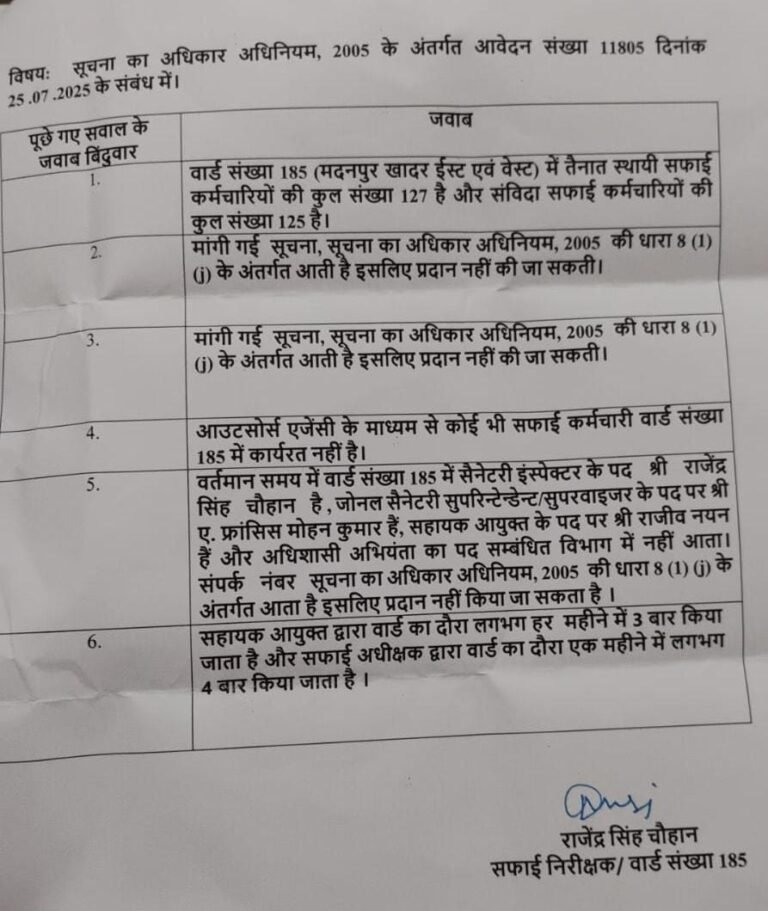 विषयः सूचना का अधिकार अधिनियम, 2005 के अंतर्गत आवेदन संख्या 11805 दिनांक
25.07.2025 के संबंध में।
पूछे गए सवाल के
जवाब बिंदुवार
जवाब
1.
वार्ड संख्या 185 (मदनपुर खादर ईस्ट एवं वेस्ट) में तैनात स्थायी सफाई
कर्मचारियों की कुल संख्या 127 है और संविदा सफाई कर्मचारियों की
कुल संख्या 125 है।
2.
मांगी गई सूचना, सूचना का अधिकार अधिनियम, 2005 की धारा 8 (1)
(j) के अंतर्गत आती है इसलिए प्रदान नहीं की जा सकती।
3.
मांगी गई सूचना, सूचना का अधिकार अधिनियम, 2005 की धारा 8 (1)
(j) के अंतर्गत आती है इसलिए प्रदान नहीं की जा सकती।
4.
आउटसोर्स एजेंसी के माध्यम से कोई भी सफाई कर्मचारी वार्ड संख्या
185 में कार्यरत नहीं है।
5.
वर्तमान समय में वार्ड संख्या 185 में सैनेटरी इंस्पेक्टर के पद श्री राजेंद्र
सिंह चौहान है , जोनल सैनेटरी सुपरिन्टेन्डेन्ट/सुपरवाइजर के पद पर श्री
ए. फ्रांसिस मोहन कुमार हैं, सहायक आयुक्त के पद पर श्री राजीव नयन
हैं और अधिशासी अभियंता का पद सम्बंधित विभाग में नहीं आता।
संपर्क नंबर सूचना का अधिकार अधिनियम, 2005 की धारा 8 (1) (j) के
अंतर्गत आता है इसलिए प्रदान नहीं किया जा सकता है ।
6.
सहायक आयुक्त द्वारा वार्ड का दौरा लगभग हर महीने में 3 बार किया
जाता है और सफाई अधीक्षक द्वारा वार्ड का दौरा एक महीने में लगभग
4 बार किया जाता है ।
राजेंद्र सिंह चौहान
सफाई निरीक्षक/ वार्ड संख्या 185